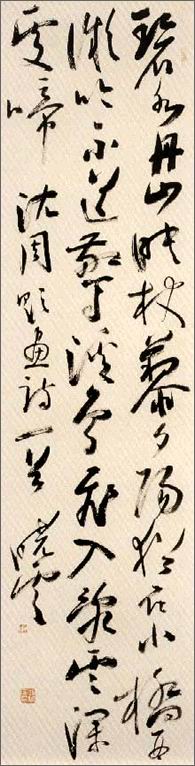 碧水丹山映杖藜夕陽猶在小橋西
微吟不道驚溪鳥飛入亂雲深
處啼 沈周題畫詩一首 曉雲